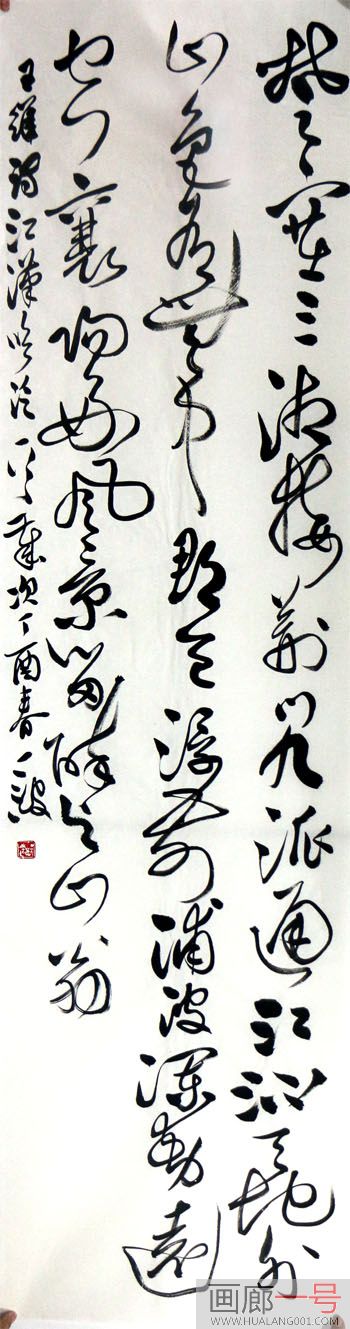 楚塞三湘接荆门九派通江流天地外
山色有无中郡邑浮前浦波澜动远
空襄阳好风景留醉与山翁
王维诗江汉临泛一首岁次丁酉春一波
画廊一号
WWW.HUALANG001.COM